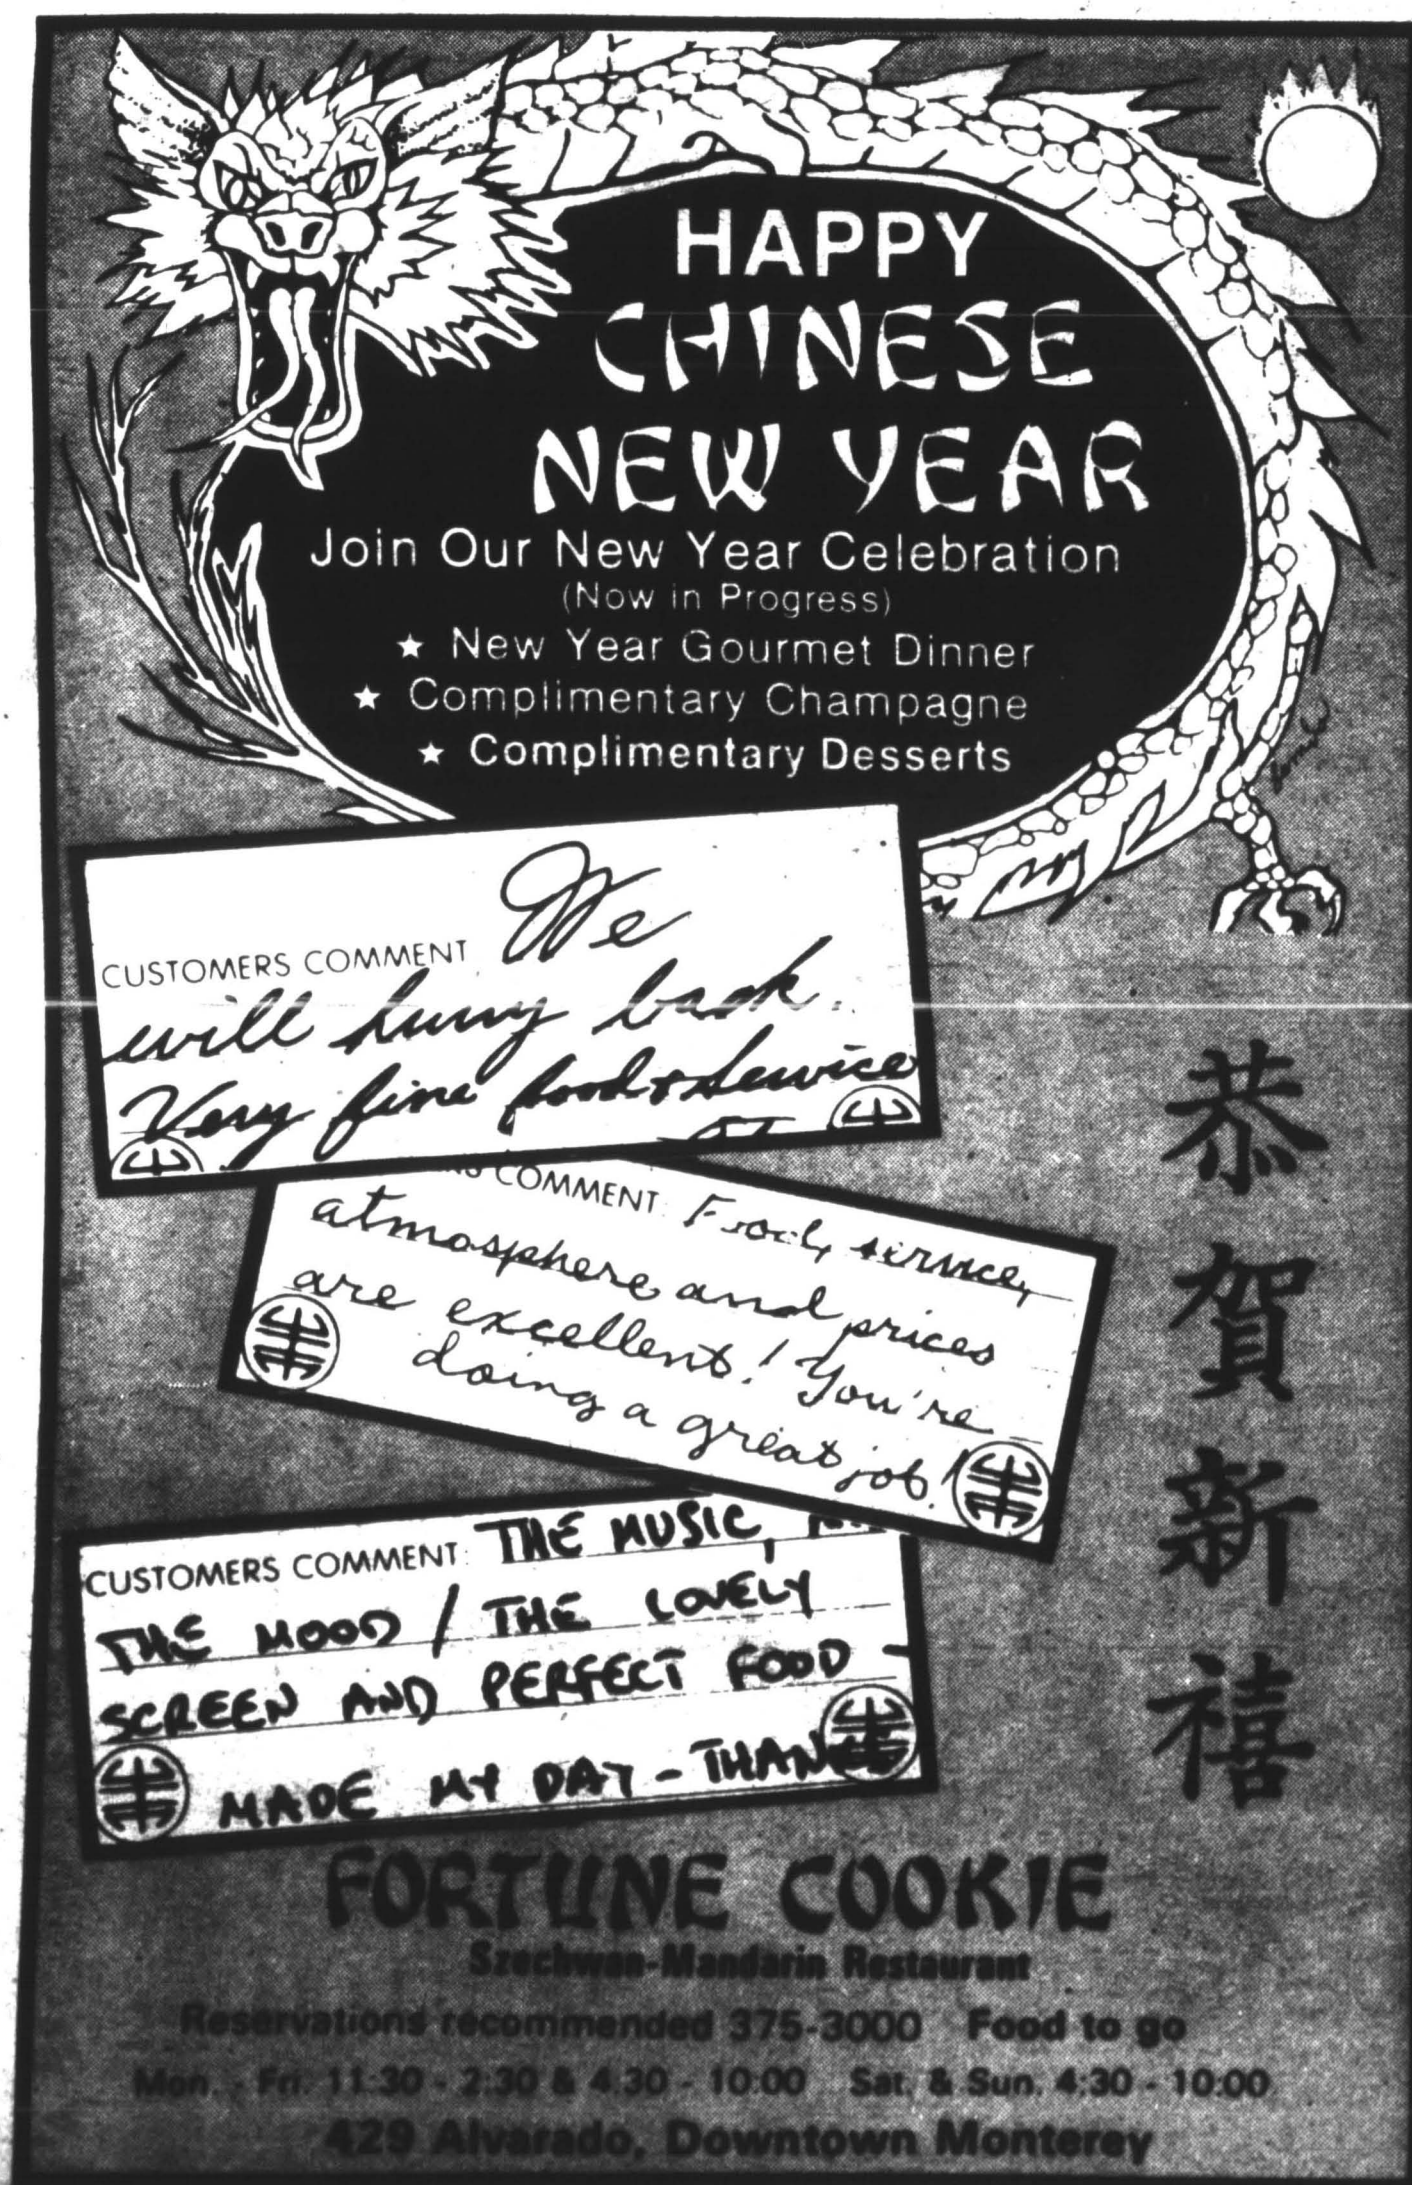 HAPPY
CHINESE
NEW YEAR
Join Our New Year Celebration
(Now in Progress)
★ New Year Gourmet Dinner
★ Complimentary Champagne
★ Complimentary Desserts
CUSTOMERS COMMENT We
will hurry back.
Very fine food & service
COMMENT: Food, service,
atmosphere and prices
are excellent! You're
doing a great job!
CUSTOMERS COMMENT: THE MUSIC,
THE MOOD / THE LOVELY
SCREEN AND PERFECT FOOD -
MADE MY DAY - THANKS
恭
賀
新
禧
FORTUNE COOKIE
Szechwan-Mandarin Restaurant
Reservations recommended 375-3000 Food to go
Mon. - Fri. 11:30 - 2:30 & 4:30 - 10:00 Sat. & Sun. 4:30 - 10:00
429 Alvarado, Downtown Monterey